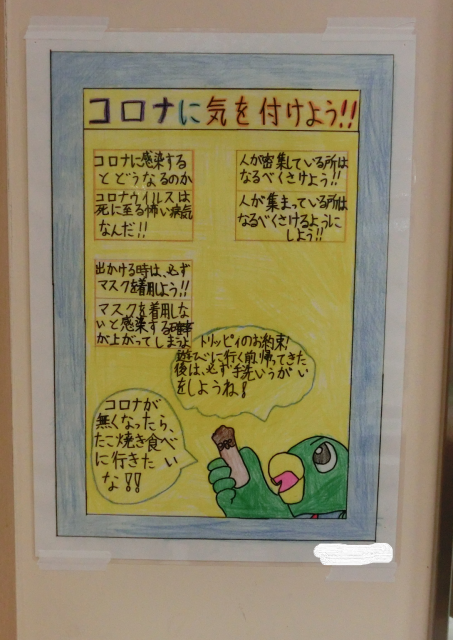 コロナに気を付けよう!!
コロナに感染する
とどうなるのか
コロナウイルスは
死に至る怖い病気
なんだ!!
人が密集している所は
なるべくさけよう!!
人が集まっている所は
なるべくさけるように
しよう!!
出かける時は、必ず
マスクを着用しよう!!
マスクを着用しな
いと感染する確率
が上がってしまうよ
トリッピィのお約束!
遊びに行く前、帰ってきた
後は、必ず手洗いうがい
をしようね!
コロナが
無くなったら、
たこ焼き食べ
に行きたい
な!!